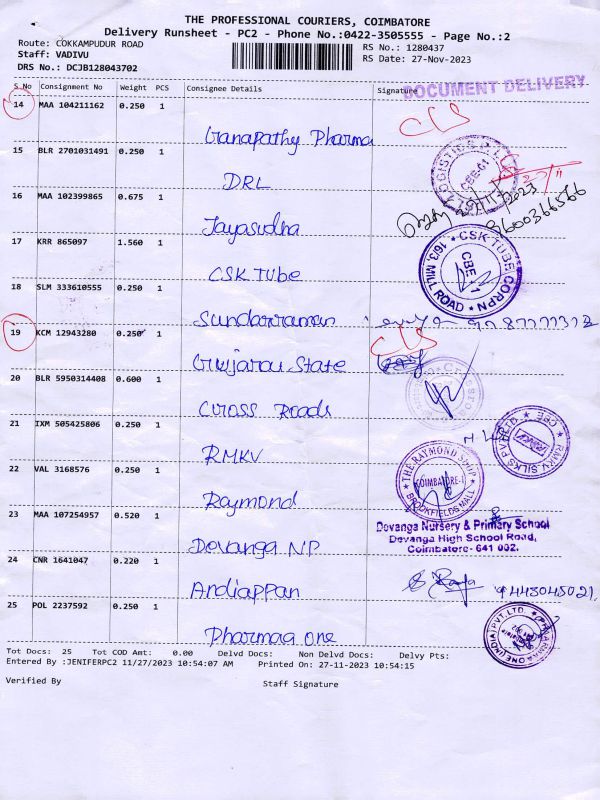 THE PROFESSIONAL COURIERS, COIMBATORE
Delivery Runsheet - PC2 - Phone No.:0422-3505555 - Page No.:2
Route: COKKAMPUDUR ROAD
Staff: VADIVU
DRS No.: DCJB128043702
RS No.: 1280437
RS Date: 27-Nov-2023
S.No Consignment No Weight PCS Consignee Details Signature
DOCUMENT DELIVERY
14 MAA 104211162 0.250 1
Ganapathy Pharma
CLS
15 BLR 2701031491 0.250 1
DRL
LOGISTICS
CBE-01
16 MAA 102399865 0.675 1
Jayasudha
9600366566
17 KRR 865097 1.560 1
CSK Tube
CSK TUBE CORPN
CBE - 1
16/3, MILL ROAD
18 SLM 333610555 0.250 1
Sundarraman
19 KCM 12943280 0.250 1
Gujarau State
CLS
20 BLR 5950314408 0.600 1
Cross Roads
21 IXM 505425806 0.250 1
RMKV
RMKV SILKS PVT LTD
CBE
22 VAL 3168576 0.250 1
Raymond
THE RAYMOND SHOP
COIMBATORE-1
BROOKFIELDS MALL
23 MAA 107254957 0.520 1
Devanga NP
Devanga Nursery & Primary School
Devanga High School Road,
Coimbatore- 641 002.
24 CNR 1641047 0.220 1
Andiappan
25 POL 2237592 0.250 1
Pharmaa one
PHARMAA ONE (INDIA) PVT. LTD.
Tot Docs: 25 Tot COD Amt: 0.00 Delvd Docs: Non Delvd Docs: Delvy Pts:
Entered By :JENIFERPC2 11/27/2023 10:54:07 AM Printed On: 27-11-2023 10:54:15
Verified By Staff Signature